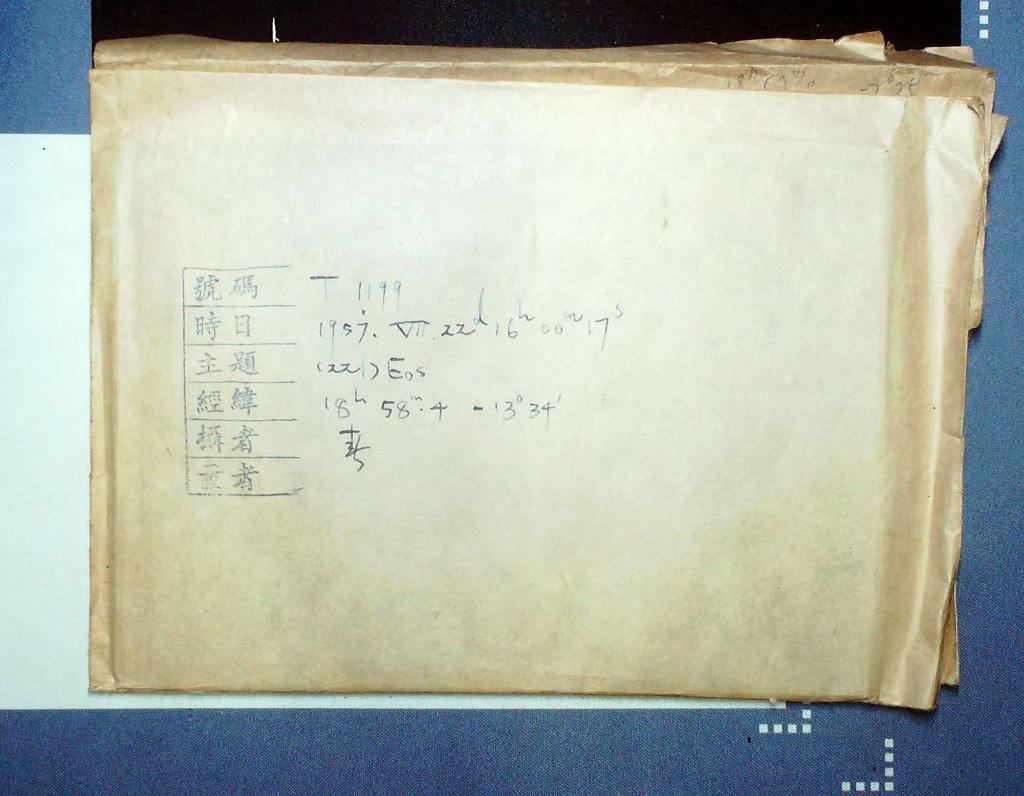 號碼 T 1199
時日 1957. VII. 22ᵈ 16ʰ 00ᵐ 17ˢ
主題 (221) Eos
經緯 18ʰ 58ᵐ.4 -13°34'
攝者
者